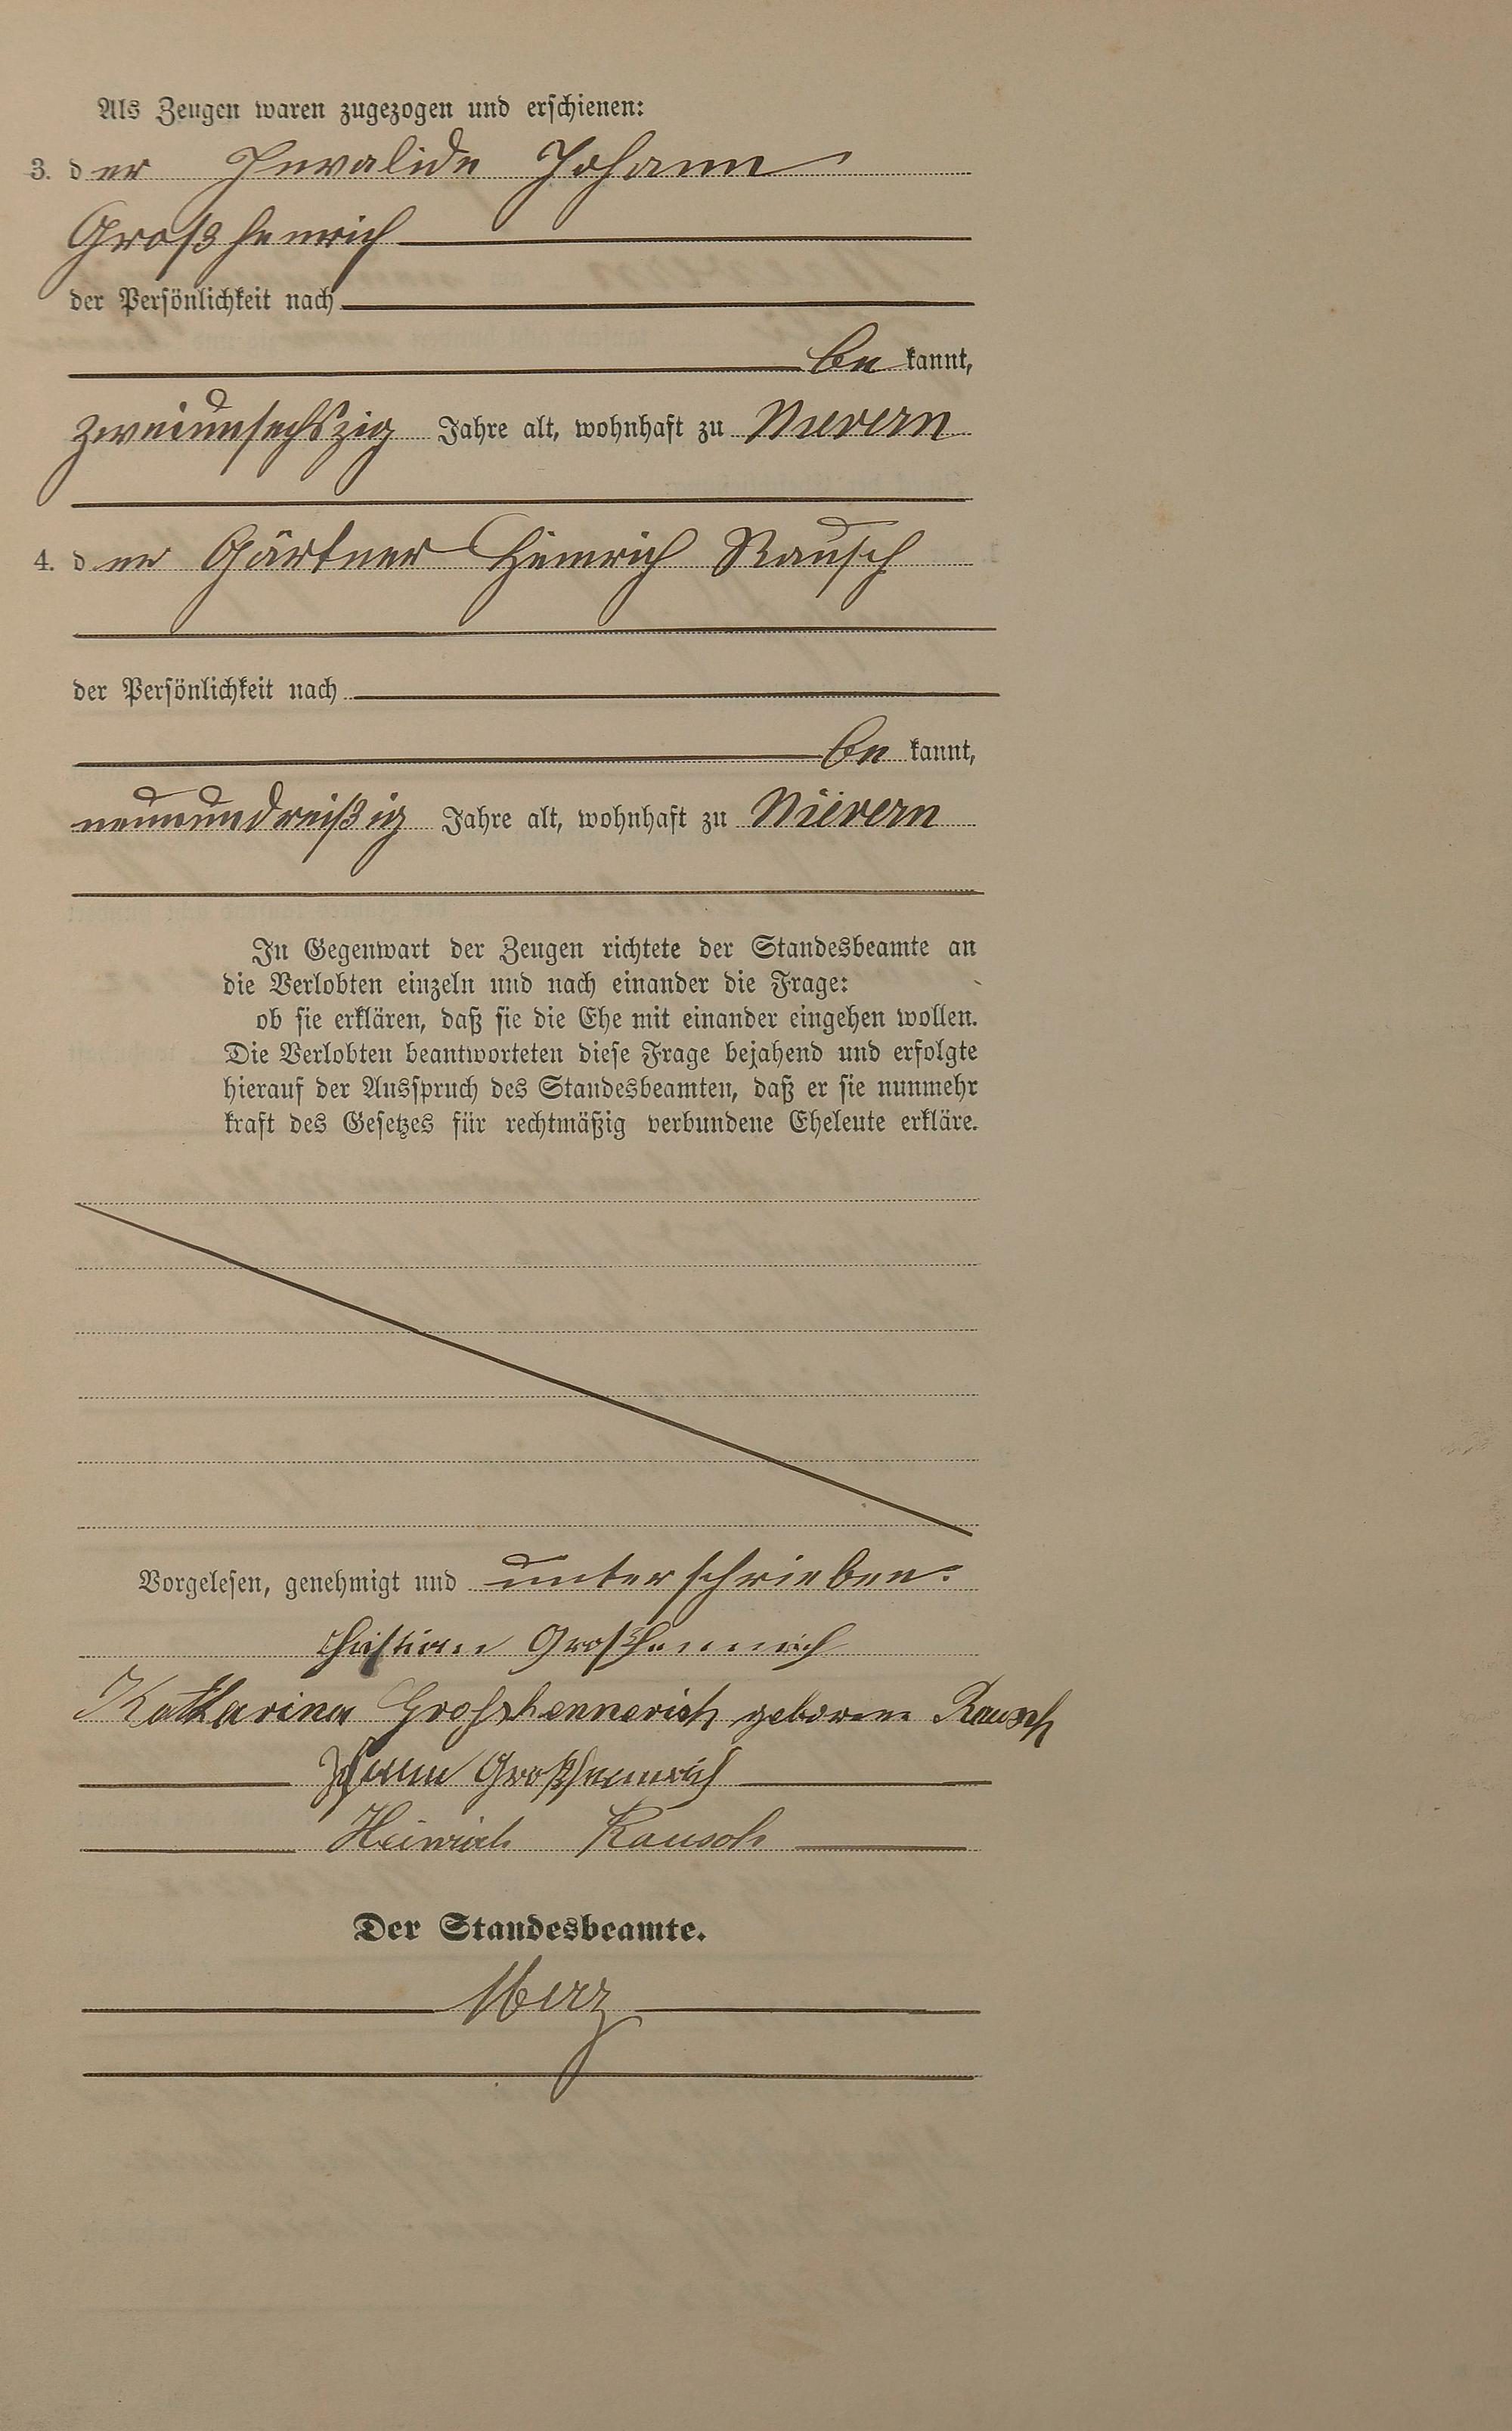 Als Zeugen waren zugezogen und erschienen:
3. der Invalide Johann
Großhenrich
der Persönlichkeit nach
be kannt,
zweiunsechszig Jahre alt, wohnhaft zu Nievern
4. der Gärtner Heinrich Rausch
der Persönlichkeit nach
be kannt,
neunundreißig Jahre alt, wohnhaft zu Nievern
In Gegenwart der Zeugen richtete der Standesbeamte an
die Verlobten einzeln und nach einander die Frage:
ob sie erklären, daß sie die Ehe mit einander eingehen wollen.
Die Verlobten beantworteten diese Frage bejahend und erfolgte
hierauf der Ausspruch des Standesbeamten, daß er sie nunmehr
kraft des Gesetzes für rechtmäßig verbundene Eheleute erkläre.
Vorgelesen, genehmigt und unterschrieben.
Christian Großhennrich
Katharina Großhennerich geborene Rausch
Johann Großhennrich
Heinrich Rausch
Der Standesbeamte.
Merz